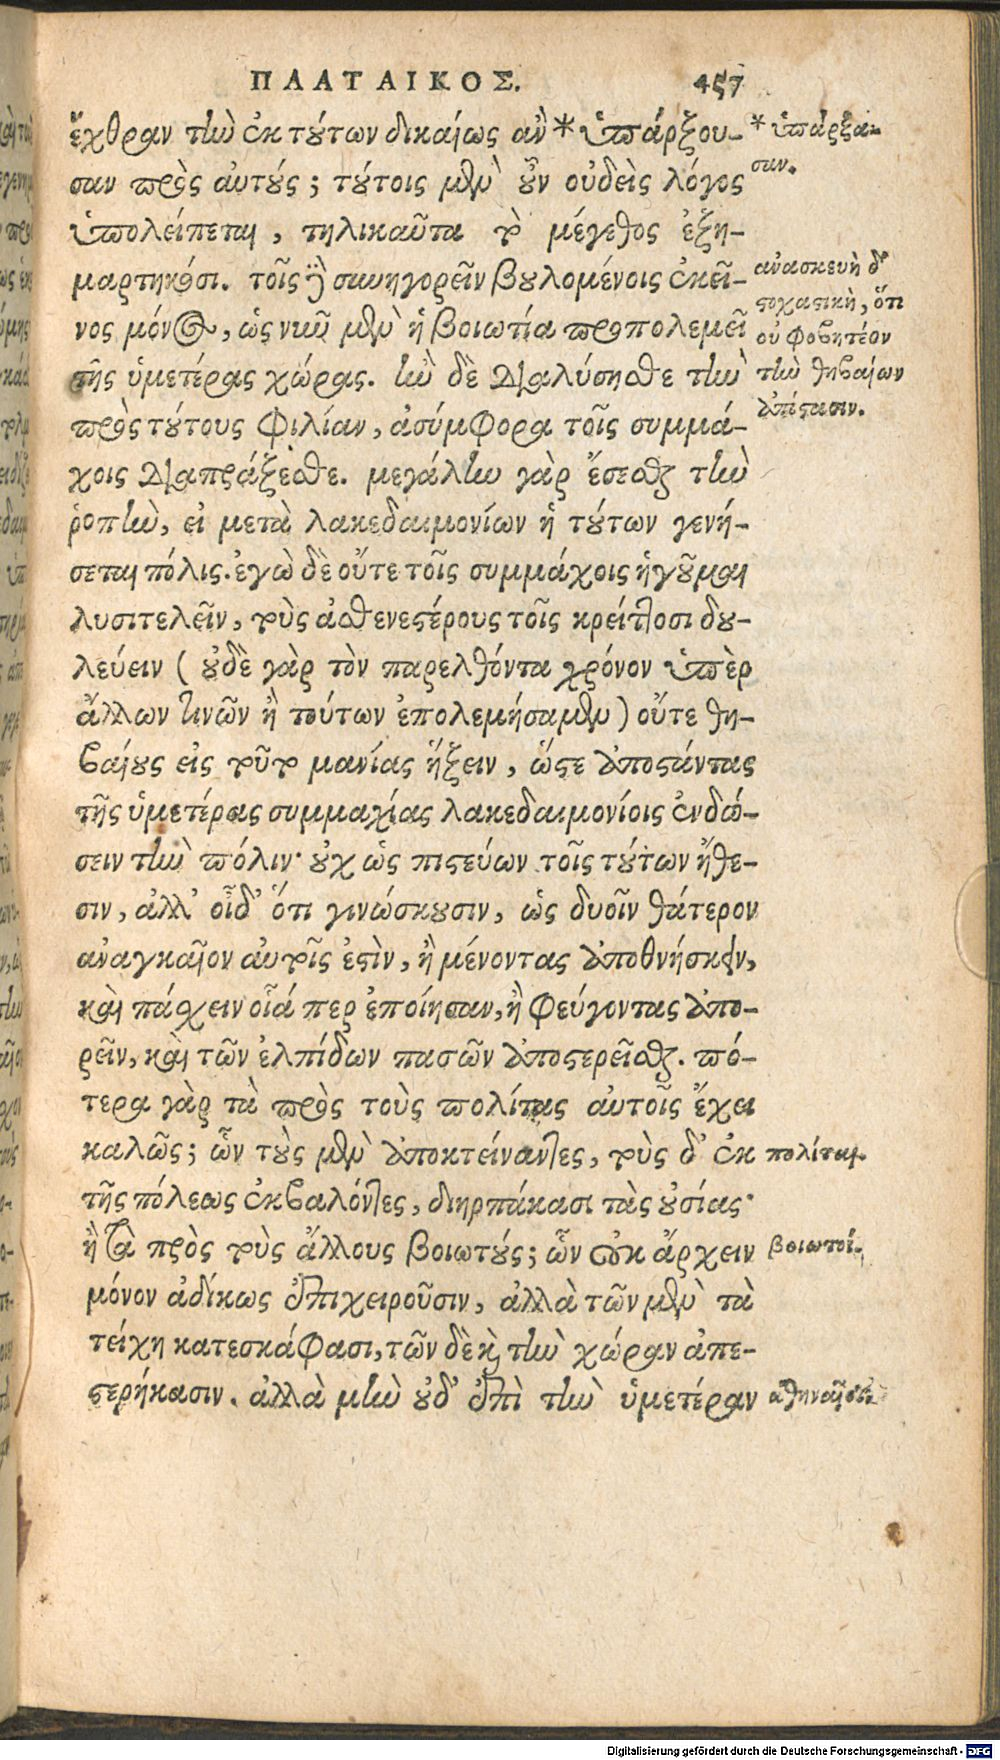 ΠΛΑΤΑΙΚΟΣ. 457
ἔχθραν τὴν ἐκ τούτων δικαίως ἂν * ὑπάρξου-
σαν πρὸς αὐτούς; τούτοις μὲν οὖν οὐδεὶς λόγος
ὑπολείπεται, τηλικαῦτα τὸ μέγεθος ἐξη-
μαρτηκόσι. τοῖς δὲ συνηγορεῖν βουλομένοις ἐκεῖ-
νος μόνος, ὡς νῦν μὲν ἡ βοιωτία προπολεμεῖ
τῆς ὑμετέρας χώρας. ἢν δὲ διαλύσησθε τὴν
πρὸς τούτους φιλίαν, ἀσύμφορα τοῖς συμμά-
χοις διαπράξεσθε. μεγάλην γὰρ ἔσεσθαι τὴν
ῥοπὴν, εἰ μετὰ λακεδαιμονίων ἡ τούτων γενή-
σεται πόλις. ἐγὼ δὲ οὔτε τοῖς συμμάχοις ἡγοῦμαι
λυσιτελεῖν, τοὺς ἀσθενεστέρους τοῖς κρείττοσι δου-
λεύειν (οὐδὲ γὰρ τὸν παρελθόντα χρόνον ὑπὲρ
ἄλλων τινῶν ἢ τούτων ἐπολεμήσαμεν) οὔτε θη-
βαίους εἰς τοῦτο μανίας ἥξειν, ὥστε ἀποστάντας
τῆς ὑμετέρας συμμαχίας λακεδαιμονίοις ἐνδώ-
σειν τὴν πόλιν· οὐχ ὡς πιστεύων τοῖς τούτων ἤθε-
σιν, ἀλλ' οἶδ' ὅτι γινώσκουσιν, ὡς δυοῖν θάτερον
ἀναγκαῖον αὐτοῖς ἐστὶν, ἢ μένοντας ἀποθνήσκειν,
καὶ πάσχειν οἷά περ ἐποίησαν, ἢ φεύγοντας ἀπο-
ρεῖν, καὶ τῶν ἐλπίδων πασῶν ἀποστερεῖσθαι. πό-
τερα γὰρ τὰ πρὸς τοὺς πολίτας αὐτοῖς ἔχει
καλῶς; ὧν τοὺς μὲν ἀποκτείναντες, τοὺς δ' ἐκ
τῆς πόλεως ἐκβαλόντες, διηρπάκασι τὰς οὐσίας·
ἢ τὰ πρὸς τοὺς ἄλλους βοιωτούς; ὧν οὐκ ἄρχειν
μόνον ἀδίκως ἐπιχειροῦσιν, ἀλλὰ τῶν μὲν τὰ
τείχη κατεσκάφασι, τῶν δὲ καὶ τὴν χώραν ἀπε-
στερήκασιν. ἀλλὰ μὴν οὐδ' ἐπὶ τὴν ὑμετέραν
* ὑπάρξα-
σαν.
ἀνασκευὴ δὲ
στοχαστικὴ, ὅτι
οὐ φοβητέον
τὴν θηβαίων
ἀπόστασιν.
πολίται.
βοιωτοί.
ἀθηναῖοι.
Digitalisierung gefördert durch die Deutsche Forschungsgemeinschaft - DFG